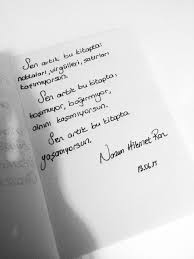 Sen artık bu kitapta
noktaları, virgülleri, satırları
taşımıyorsun.
Sen artık bu kitapta
koşmuyor, bağırmıyor,
alnını kaşımıyorsun.
Sen artık bu kitapta
yaşamıyorsun.
Nazım Hikmet Ran